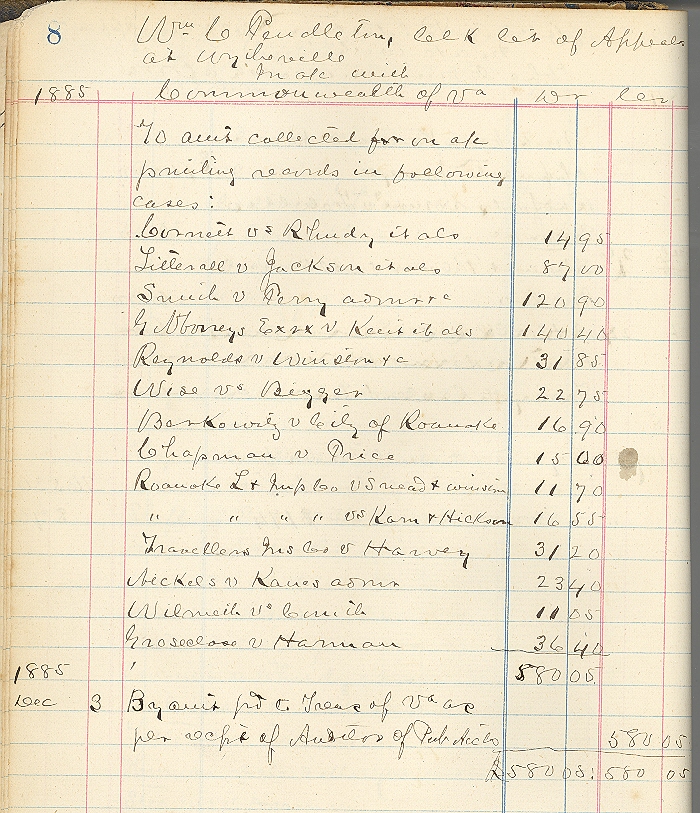 8 Wm C Pendleton, Clk Crt of Appeals
at Wytheville
In a/c with
1885 Commonwealth of Va Dr Cr
To amt collected for on a/c
printing records in following
cases:
Cornett vs Rhudy et als 14 95
Litterall v Jackson et als 87 00
Smith v Perry admr &c 120 90
Exrx v et als 140 40
Reynolds v Winston &c 31 85
Wise vs Bigger 22 75
Berkowitz v City of Roanoke 16 90
Chapman v Price 15 00
Roanoke L & Imp Co vs Snead & Winston 11 70
" " " " vs Karn & Hickson 16 55
Travellers Ins Co v Harvey 31 20
Nickels v Kanes admr 23 40
Wilmeth vs 11 05
Groseclose v Harman 36 40
1885 580 05
Dec 3 By amt pd to Treas of Va as
per recpt of Auditor of Pub Accts 580 05
$580 05: 580 05